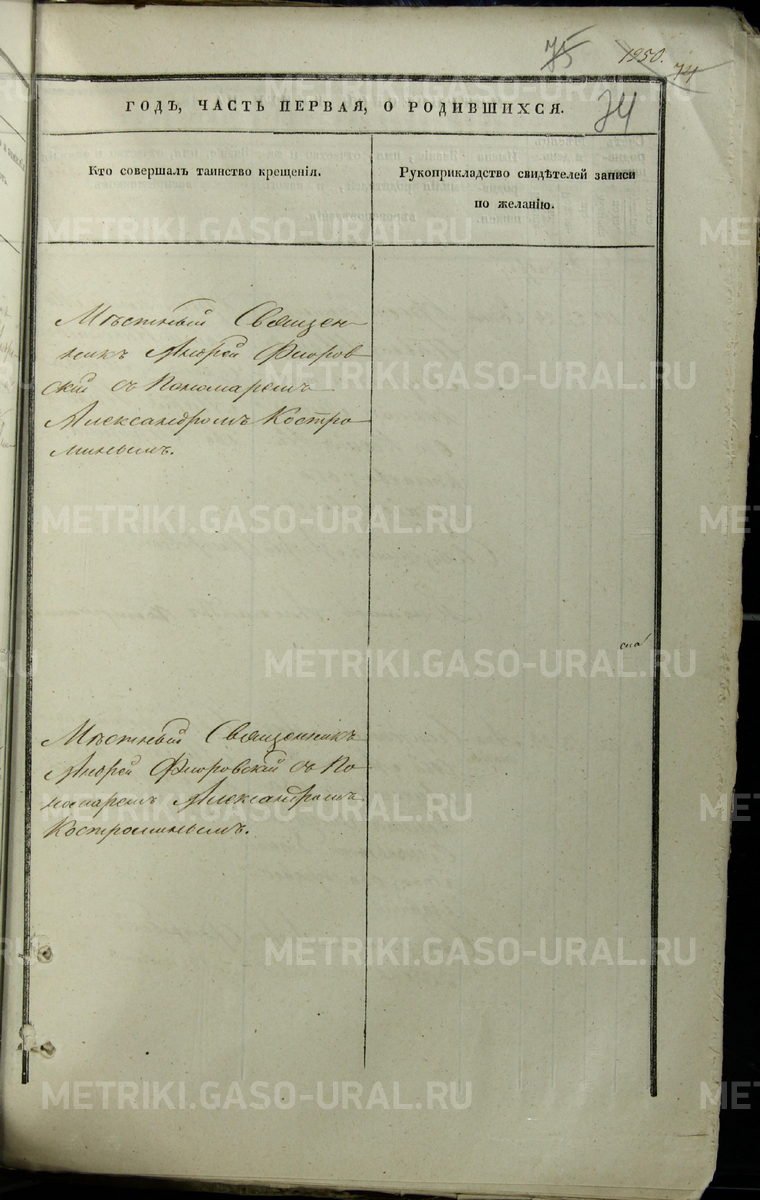 75 1950. 74
ГОДЪ, ЧАСТЬ ПЕРВАЯ, О РОДИВШИХСЯ. 74
Кто совершалъ таинство крещенія.
Рукоприкладство свидѣтелей записи
по желанію.
Мѣстный Священ-
никъ Андрей Флоров-
скій съ Пономаремъ
Александромъ Костро-
минымъ.
Мѣстный Священникъ
Андрей Флоровскій съ По-
номаремъ Александромъ
Костроминымъ.
METRIKI.GASO-URAL.RU